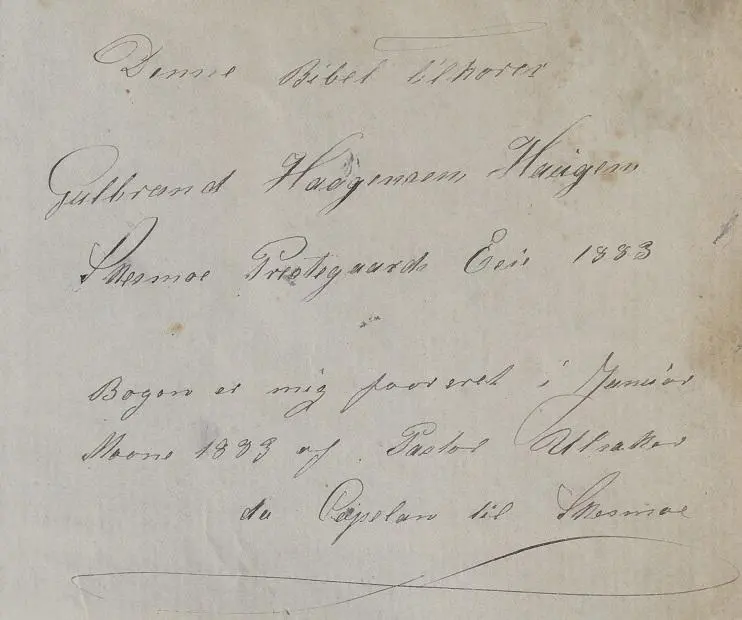 Denne Bibel tilhører
Gulbrand Haagensen Haugen
Skesmoe Prestegaards Eeie 1883
Bogen er mig foræret i Januar
Maane 1883 af Pastor
da Capelan til Skesmoe